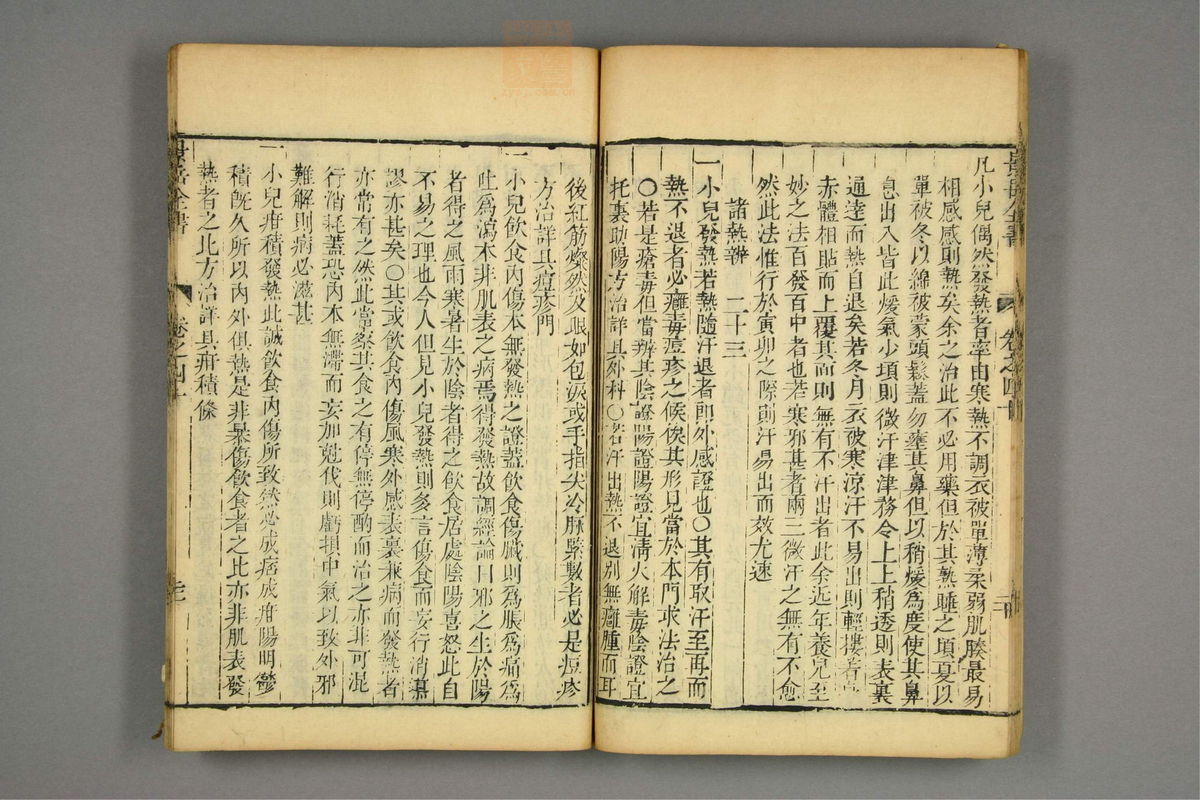 凡小兒偶然發熱者率由寒熱不調衣被單薄柔弱肌腠最易
相感感則熱矣余之治此不必用藥但於其熱睡之頃夏以
單被冬以綿被蒙頭鬆蓋勿壅其鼻但以稍煖為度使其鼻
息出入皆此煖氣少頃則微汗津津務令上上稍透則表裏
通達而熱自退矣若冬月衣被寒涼汗不易出則輕摟著
赤體相貼而上覆其面則無有不汗出者此余近年養兒至
妙之法百發百中者也若寒邪甚者兩三微汗之無有不愈
然此法惟行於寅卯之際則汗易出而效尤速
諸熱辨 二十三
一小兒發熱若熱隨汗退者即外感證也○其有取汗至再而
熱不退者必癰毒痘疹之候俟其形見當於本門求法治之
○若是瘡毒但當辨其陰證陽證陽證宜清火解毒陰證宜
托裏助陽方治詳具外科○若汗出熱不退別無癰腫而耳
後紅筋燦然及眼如包淚或手指尖冷脈緊數者必是痘疹
方治詳具痘疹門
一小兒飲食內傷本無發熱之證蓋飲食傷臟則為脹為痛為
吐為瀉本非肌表之病焉得發熱故調經論曰邪之生於陽
者得之風雨寒暑生於陰者得之飲食居處陰陽喜怒此自
不易之理也今人但見小兒發熱則多言傷食而妄行消導
謬亦甚矣○其或飲食內傷風寒外感表裏兼病而發熱者
亦常有之然此當察其食之有停無停酌而治之亦非可混
行消耗蓋恐內本無滯而妄加尅伐則虧損中氣以致外邪
難解則病必滋甚
一小兒疳積發熱此誠飲食內傷所致然必成病成疳陽明鬱
積既久所以內外俱熱是非暴傷飲食者之比亦非肌表發
熱者之比方治詳具疳積條
景岳全書
卷之四十